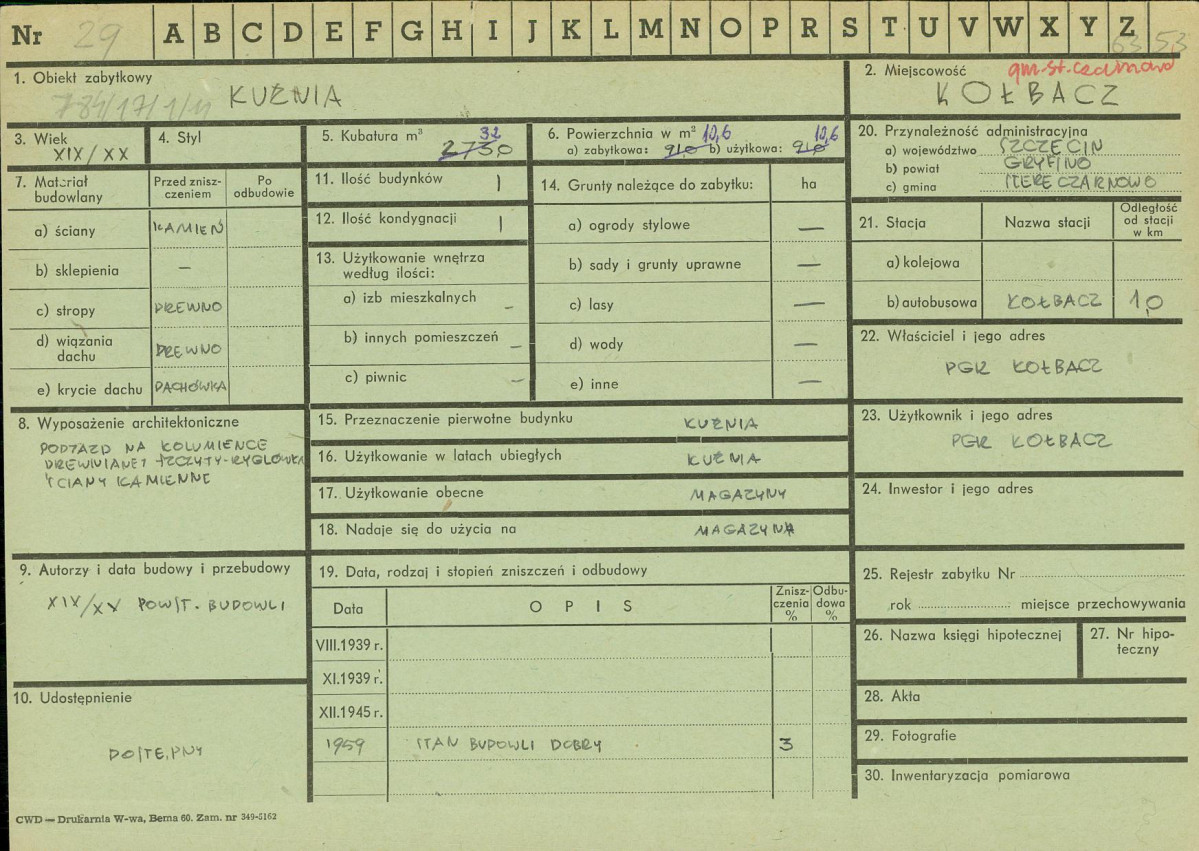 Nr 29 A B C D E F G H I J K L M N O P R S T U V W X Y Z
63 53
1. Obiekt zabytkowy
KUŹNIA
2. Miejscowość
gm. st. czarnowo
KOŁBACZ
3. Wiek
XIX/XX
4. Styl
5. Kubatura m³ 32
2730
6. Powierzchnia w m² 10,6 10,6
a) zabytkowa: 91,0 b) użytkowa: 91,0
20. Przynależność administracyjna
a) województwo SZCZECIN
b) powiat GRYFINO
c) gmina STERE CZARNOWO
7. Materiał budowlany
Przed zniszczeniem
Po odbudowie
a) ściany KAMIEŃ
b) sklepienia —
c) stropy DREWNO
d) wiązania dachu DREWNO
e) krycie dachu DACHÓWKA
11. Ilość budynków 1
12. Ilość kondygnacji 1
13. Użytkowanie wnętrza
według ilości:
a) izb mieszkalnych –
b) innych pomieszczeń –
c) piwnic –
14. Grunty należące do zabytku: ha
a) ogrody stylowe —
b) sady i grunty uprawne —
c) lasy —
d) wody —
e) inne —
21. Stacja
Nazwa stacji
Odległość od stacji w km
a) kolejowa
b) autobusowa KOŁBACZ 1,0
22. Właściciel i jego adres
PGR KOŁBACZ
8. Wyposażenie architektoniczne
PODJAZD NA KOLUMIENCE
DREWNIANEJ SZCZYTY-RYGLÓWKA
ŚCIANY KAMIENNE
15. Przeznaczenie pierwotne budynku KUŹNIA
16. Użytkowanie w latach ubiegłych KUŹNIA
17. Użytkowanie obecne MAGAZYNY
18. Nadaje się do użycia na MAGAZYNA
23. Użytkownik i jego adres
PGR KOŁBACZ
24. Inwestor i jego adres
9. Autorzy i data budowy i przebudowy
XIX/XX POWST. BUDOWLI
10. Udostępnienie
DOSTĘPNY
19. Data, rodzaj i stopień zniszczeń i odbudowy
Data
OPIS
Zniszczenia %
Odbudowa %
VIII.1939 r.
XI.1939 r.
XII.1945 r.
1959 STAN BUDOWLI DOBRY 3
25. Rejestr zabytku Nr
rok miejsce przechowywania
26. Nazwa księgi hipotecznej
27. Nr hipoteczny
28. Akta
29. Fotografie
30. Inwentaryzacja pomiarowa
CWD — Drukarnia W-wa, Bema 60. Zam. nr 349-5162